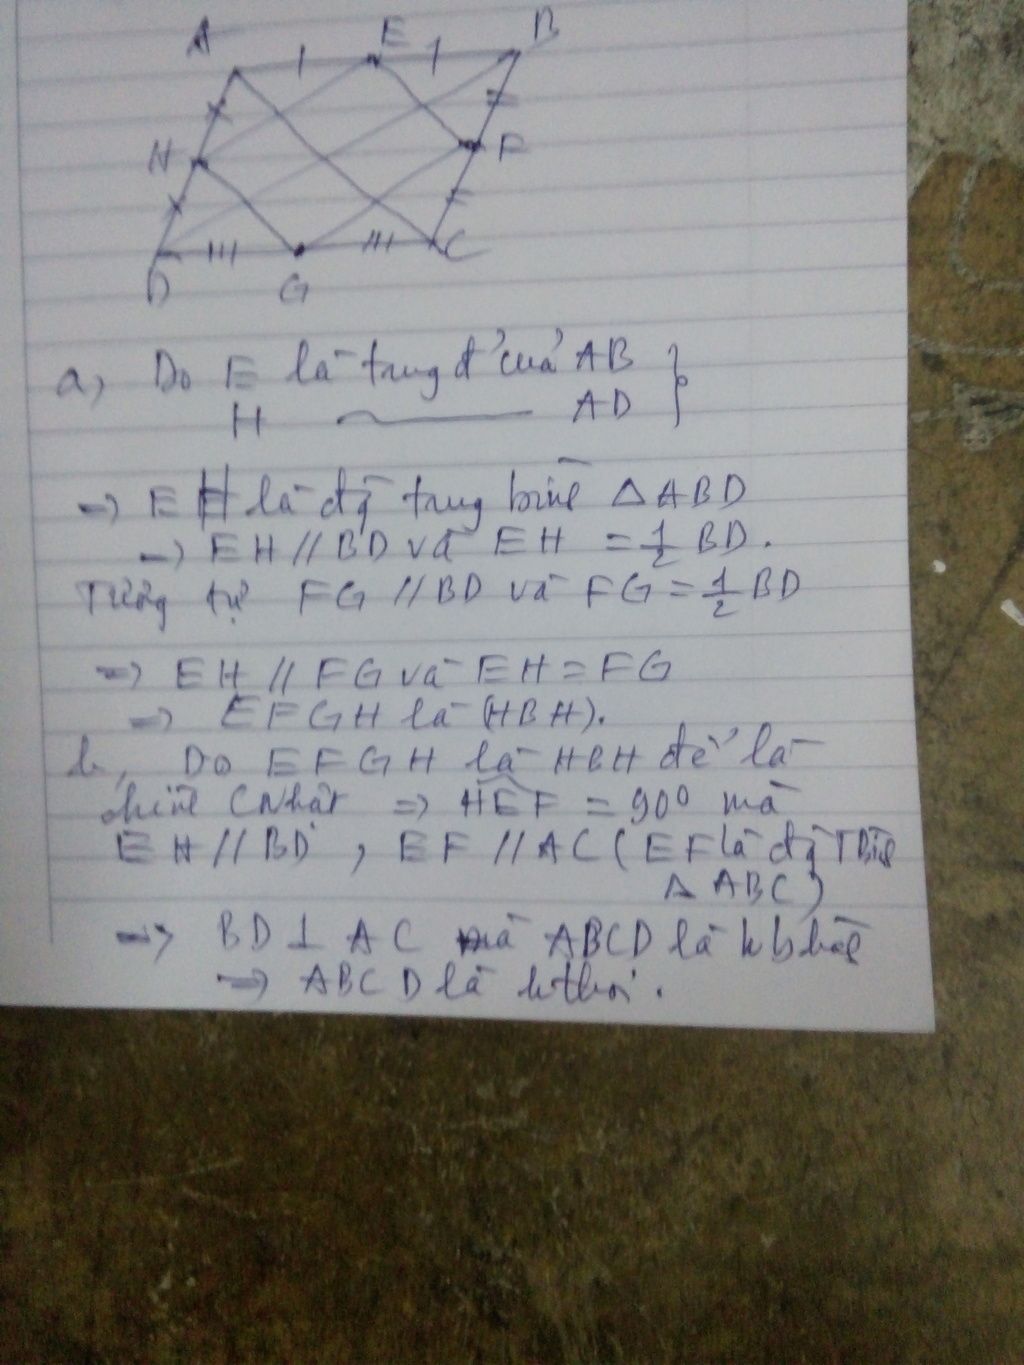 A E B
H F
D G C
a, Do E là trung đ' của AB
H ~ AD }
=> EH là đg̀ trung bình Δ ABD
=> EH // BD và EH = 1/2 BD.
Tương tự FG // BD và FG = 1/2 BD
=> EH // FG và EH = FG
=> EFGH là (HBH).
b, Do EFGH là HBH để là
hình CNhật => HEF = 90° mà
EH // BD , EF // AC ( EF là đg̀ TBìn
Δ ABC)
=> BD ⊥ AC mà ABCD là hbhàh
=> ABCD là hthoi.